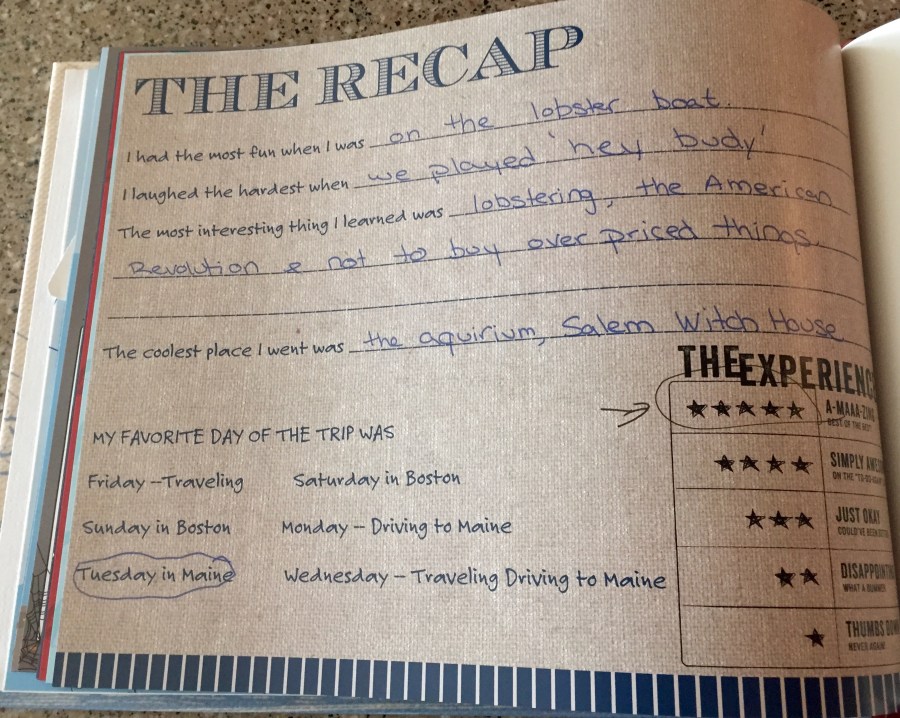 THE RECAP
I had the most fun when I was on the lobster boat.
I laughed the hardest when we played 'hey budy'
The most interesting thing I learned was lobstering, the American
Revolution & not to buy over priced things.
The coolest place I went was the aquirium, Salem Witch House
THE EXPERIENC
★★★★★ A-MAAA-ZING
BEST OF THE BEST
MY FAVORITE DAY OF THE TRIP WAS
★★★★ SIMPLY
ON THE
Friday –Traveling Saturday in Boston
★★★ JUST OKAY
COULD'VE BEEN
Sunday in Boston Monday – Driving to Maine
★★ DISAPPOINTIN
WHAT A BUMMER
Tuesday in Maine Wednesday – Traveling Driving to Maine
★ THUMBS DOWN
NEVER AGAIN